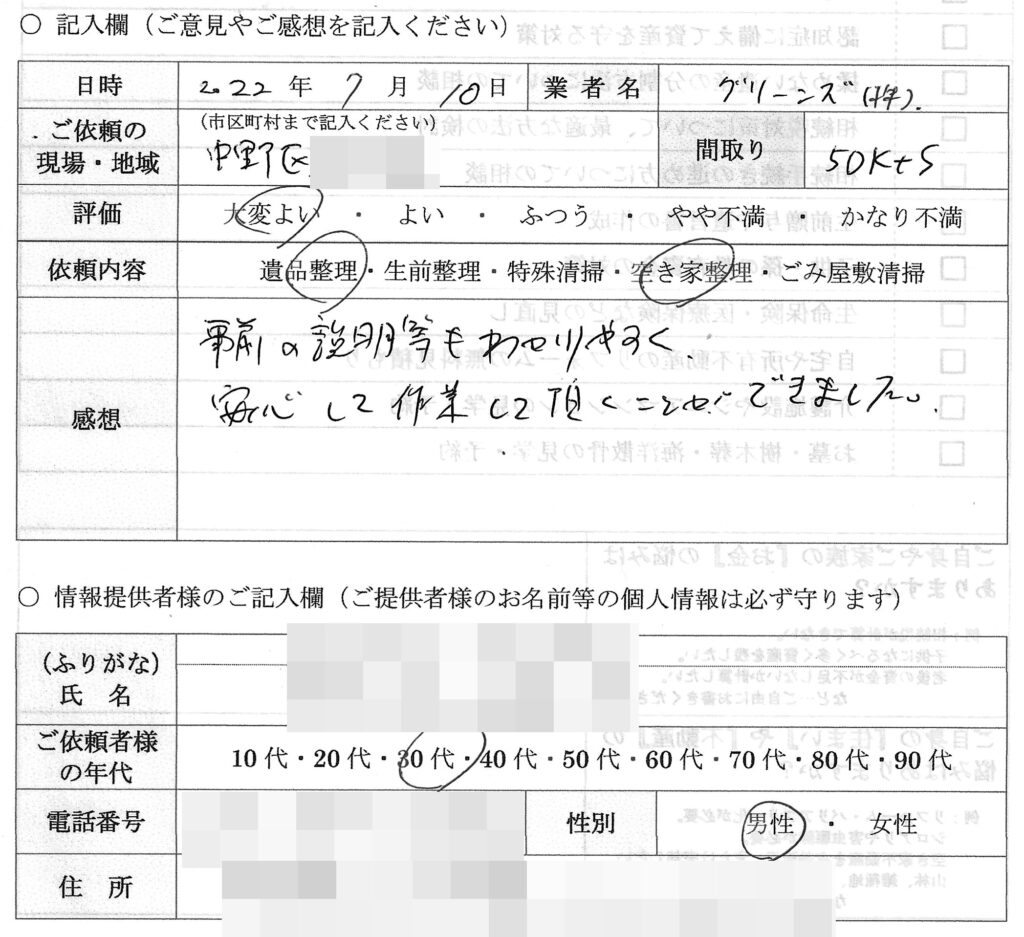 ○ 記入欄（ご意見やご感想を記入ください）
日時 2022 年 7 月 10 日 業者名 グリーンズ(株).
ご依頼の現場・地域 (市区町村まで記入ください) 中野区 間取り 50K+S
評価 大変よい ・ よい ・ ふつう ・ やや不満 ・ かなり不満
依頼内容 遺品整理・生前整理・特殊清掃・空き家整理・ごみ屋敷清掃
感想
事前の説明等もわかりやすく
安心して作業して頂くことができました。
○ 情報提供者様のご記入欄（ご提供者様のお名前等の個人情報は必ず守ります）
(ふりがな)
氏 名
ご依頼者様の年代 10代・20代・30代・40代・50代・60代・70代・80代・90代
電話番号 性別 男性 ・ 女性
住 所